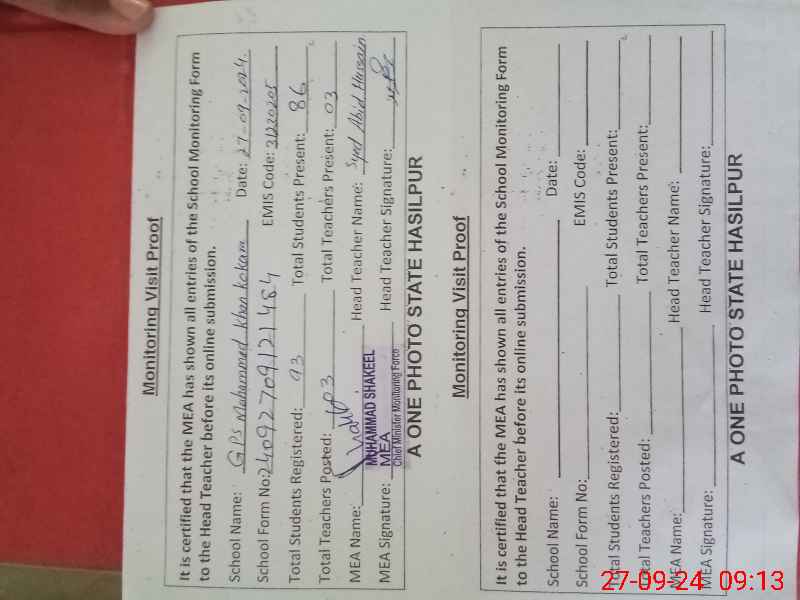 Monitoring Visit Proof
It is certified that the MEA has shown all entries of the School Monitoring Form
to the Head Teacher before its online submission.
School Name: GPS Muhammad Khan kokara Date: 27-09-2024.
School Form No: 240927709121484 EMIS Code: 31220205
Total Students Registered: 93 Total Students Present: 86
Total Teachers Posted: 03 Total Teachers Present: 03
MEA Name: Head Teacher Name: Syed Abid Hussain
MUHAMMAD SHAKEEL
MEA
Chief Minister Monitoring Force
MEA Signature: Head Teacher Signature:
A ONE PHOTO STATE HASILPUR
Monitoring Visit Proof
It is certified that the MEA has shown all entries of the School Monitoring Form
to the Head Teacher before its online submission.
School Name: Date:
School Form No: EMIS Code:
Total Students Registered: Total Students Present:
Total Teachers Posted: Total Teachers Present:
MEA Name: Head Teacher Name:
MEA Signature: Head Teacher Signature:
A ONE PHOTO STATE HASILPUR
27-09-24 09:13